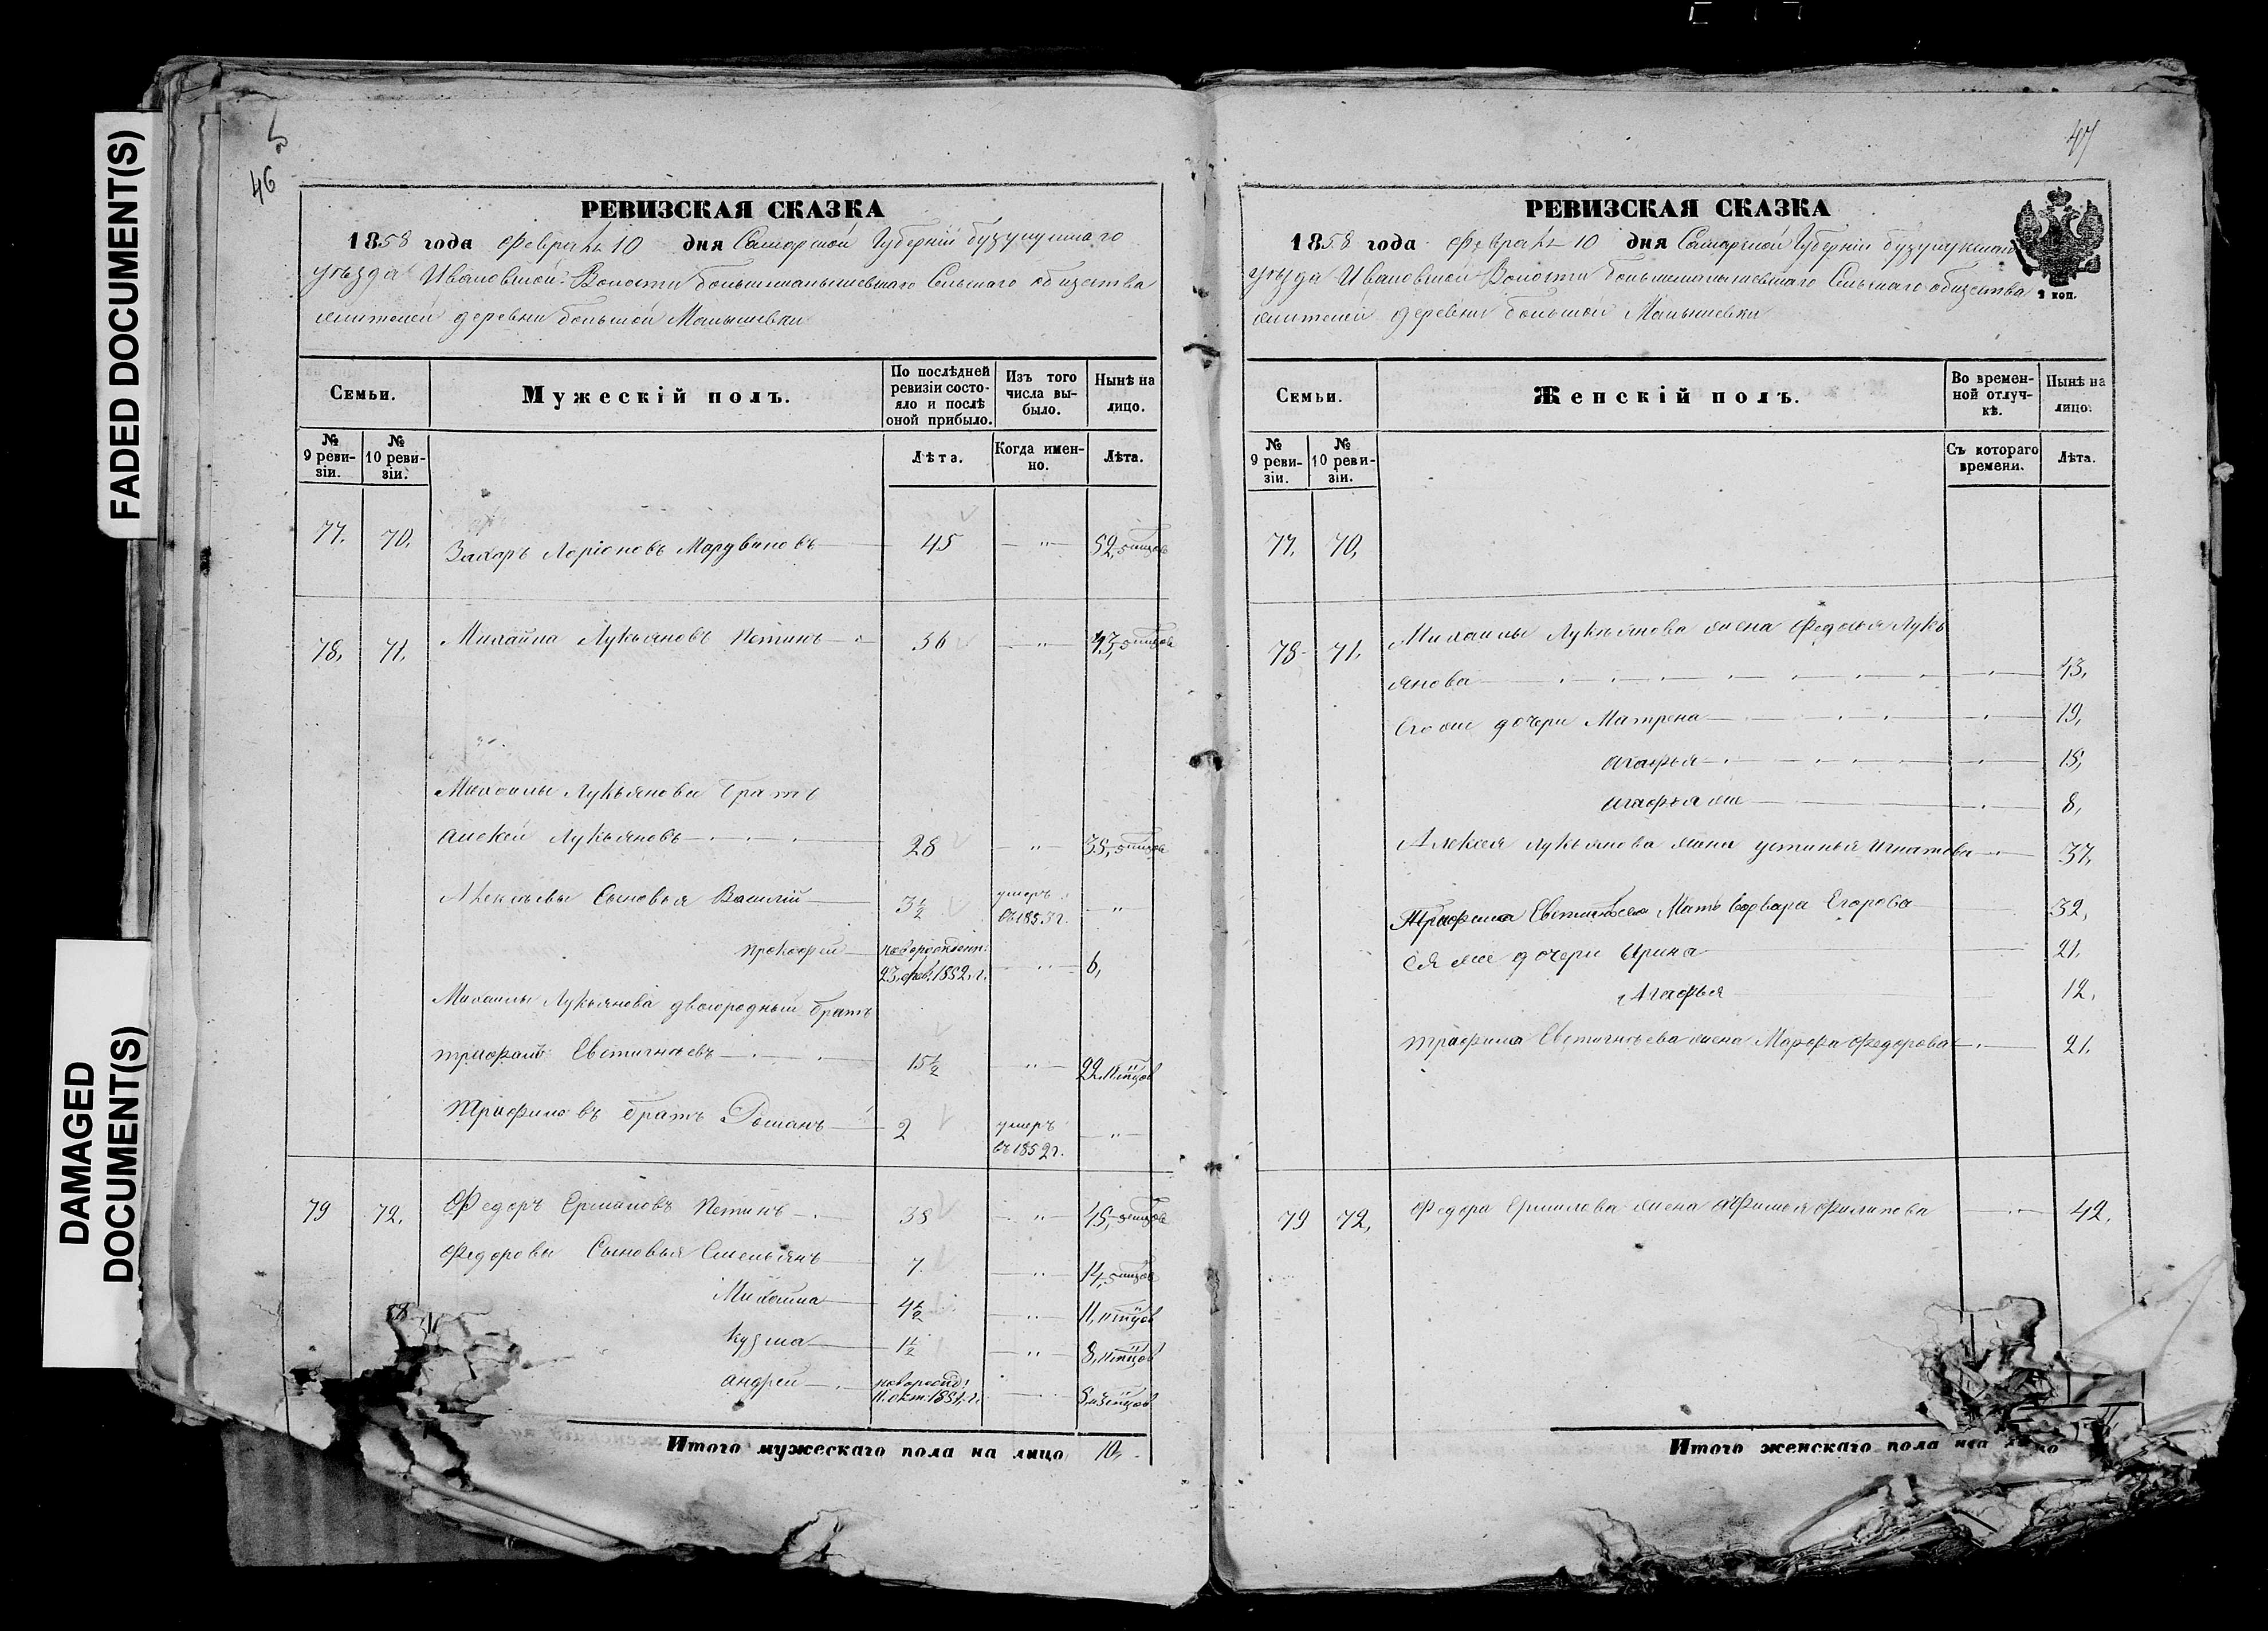 FADED DOCUMENT(S)
DAMAGED
DOCUMENT(S)
46
РЕВИЗСКАЯ СКАЗКА
1858 года Февраля 10 дня Самарской Губерніи Бузулукскаго
уѣзда Ивановской Волости Большемалышевскаго Сельскаго общества
жителей деревни Большой Малышевки
Семьи.
Мужескій полъ.
По послѣдней
ревизіи состо-
яло и послѣ
оной прибыло.
Изъ того
числа вы-
было.
Нынѣ на
лицо.
№
9 реви-
зіи.
№
10 реви-
зіи.
Лѣта.
Когда имен-
но.
Лѣта.
77. 70. Захаръ Ларіоновъ 45 — " — 52,
78. 71. Михайла Лукьяновъ Петинъ 36 — " — 43,
Михайлы Лукьянова братъ
Алексей Лукьяновъ 28 — " — 35,
Алексеевы Сыновья Василій 3½ умеръ въ 1857 г. — " —
Прокофей новорожден: 23 фев. 1852 г. — " — 6,
Михайлы Лукьянова двоюродный братъ
Трифонъ Евстигнеевъ 15½ — " — 22
Трифоновъ братъ Романъ 2 умеръ въ 1852 г. — " —
79 72. Федоръ Ермиловъ Петинъ 38 — " — 45,
Федоровы Сыновья Емельянъ 7. — " — 14,
Михайла 4½ — " — 11,
Кузма 1½ — " — 8,
Андрей новорожд: 11 окт: 1851 г. — " —
Итого мужескаго пола на лицо 10,
47
РЕВИЗСКАЯ СКАЗКА
1858 года Февраля 10 дня Самарской Губерніи Бузулукскаго
уѣзда Ивановской Волости Большемалышевскаго Сельскаго общества
жителей деревни Большой Малышевки
2 коп.
Семьи.
Женскій полъ.
Во времен-
ной отлуч-
кѣ.
Нынѣ на
лицо.
№
9 реви-
зіи.
№
10 реви-
зіи.
Съ котораго
времени.
Лѣта.
77, 70,
78. 71. Михайлы Лукьянова жена Федосья Лукь
янова 43,
Его же дочери Матрена 19,
Агафья 15,
Агафья же 8,
Алексея Лукьянова жена Устинья Игнатова 37,
Трифона Евстигнеева Мать Варвара Егорова 52,
Ея же дочери Ирина 21.
Агафья 12.
Трифона Евстигнеева жена Марфа Федорова 21.
79 72, Федора Ермилова жена Афимья Филипова 42.
Итого женскаго пола на лицо